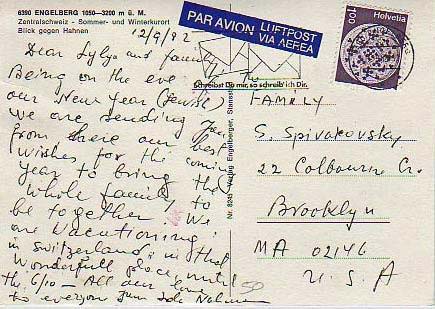 6390 ENGELBERG 1050—3200 m ü. M.
Zentralschweiz - Sommer- und Winterkurort
Blick gegen Hahnen
12/9/82
PAR AVION LUFTPOST
VIA AEREA
100 Helvetia
Schreibst Du mir, so schreib ich Dir.
Dear Lylya and family
Being on the eve of the
our New Year (Jewish)
We are sending you
from here our best
wishes for the coming
year to bring the
whole family to
be together! We
are vacationing
in Switzerland in that
wonderfull place until
the 6/10 — All our love
to everyone
Nr. 8245 Verlag Engelberger, Stansstad
FAMILY
S. Spivakovsky
22 Colbourne Cr.
Brooklyn
MA 02146
U.S.A
50